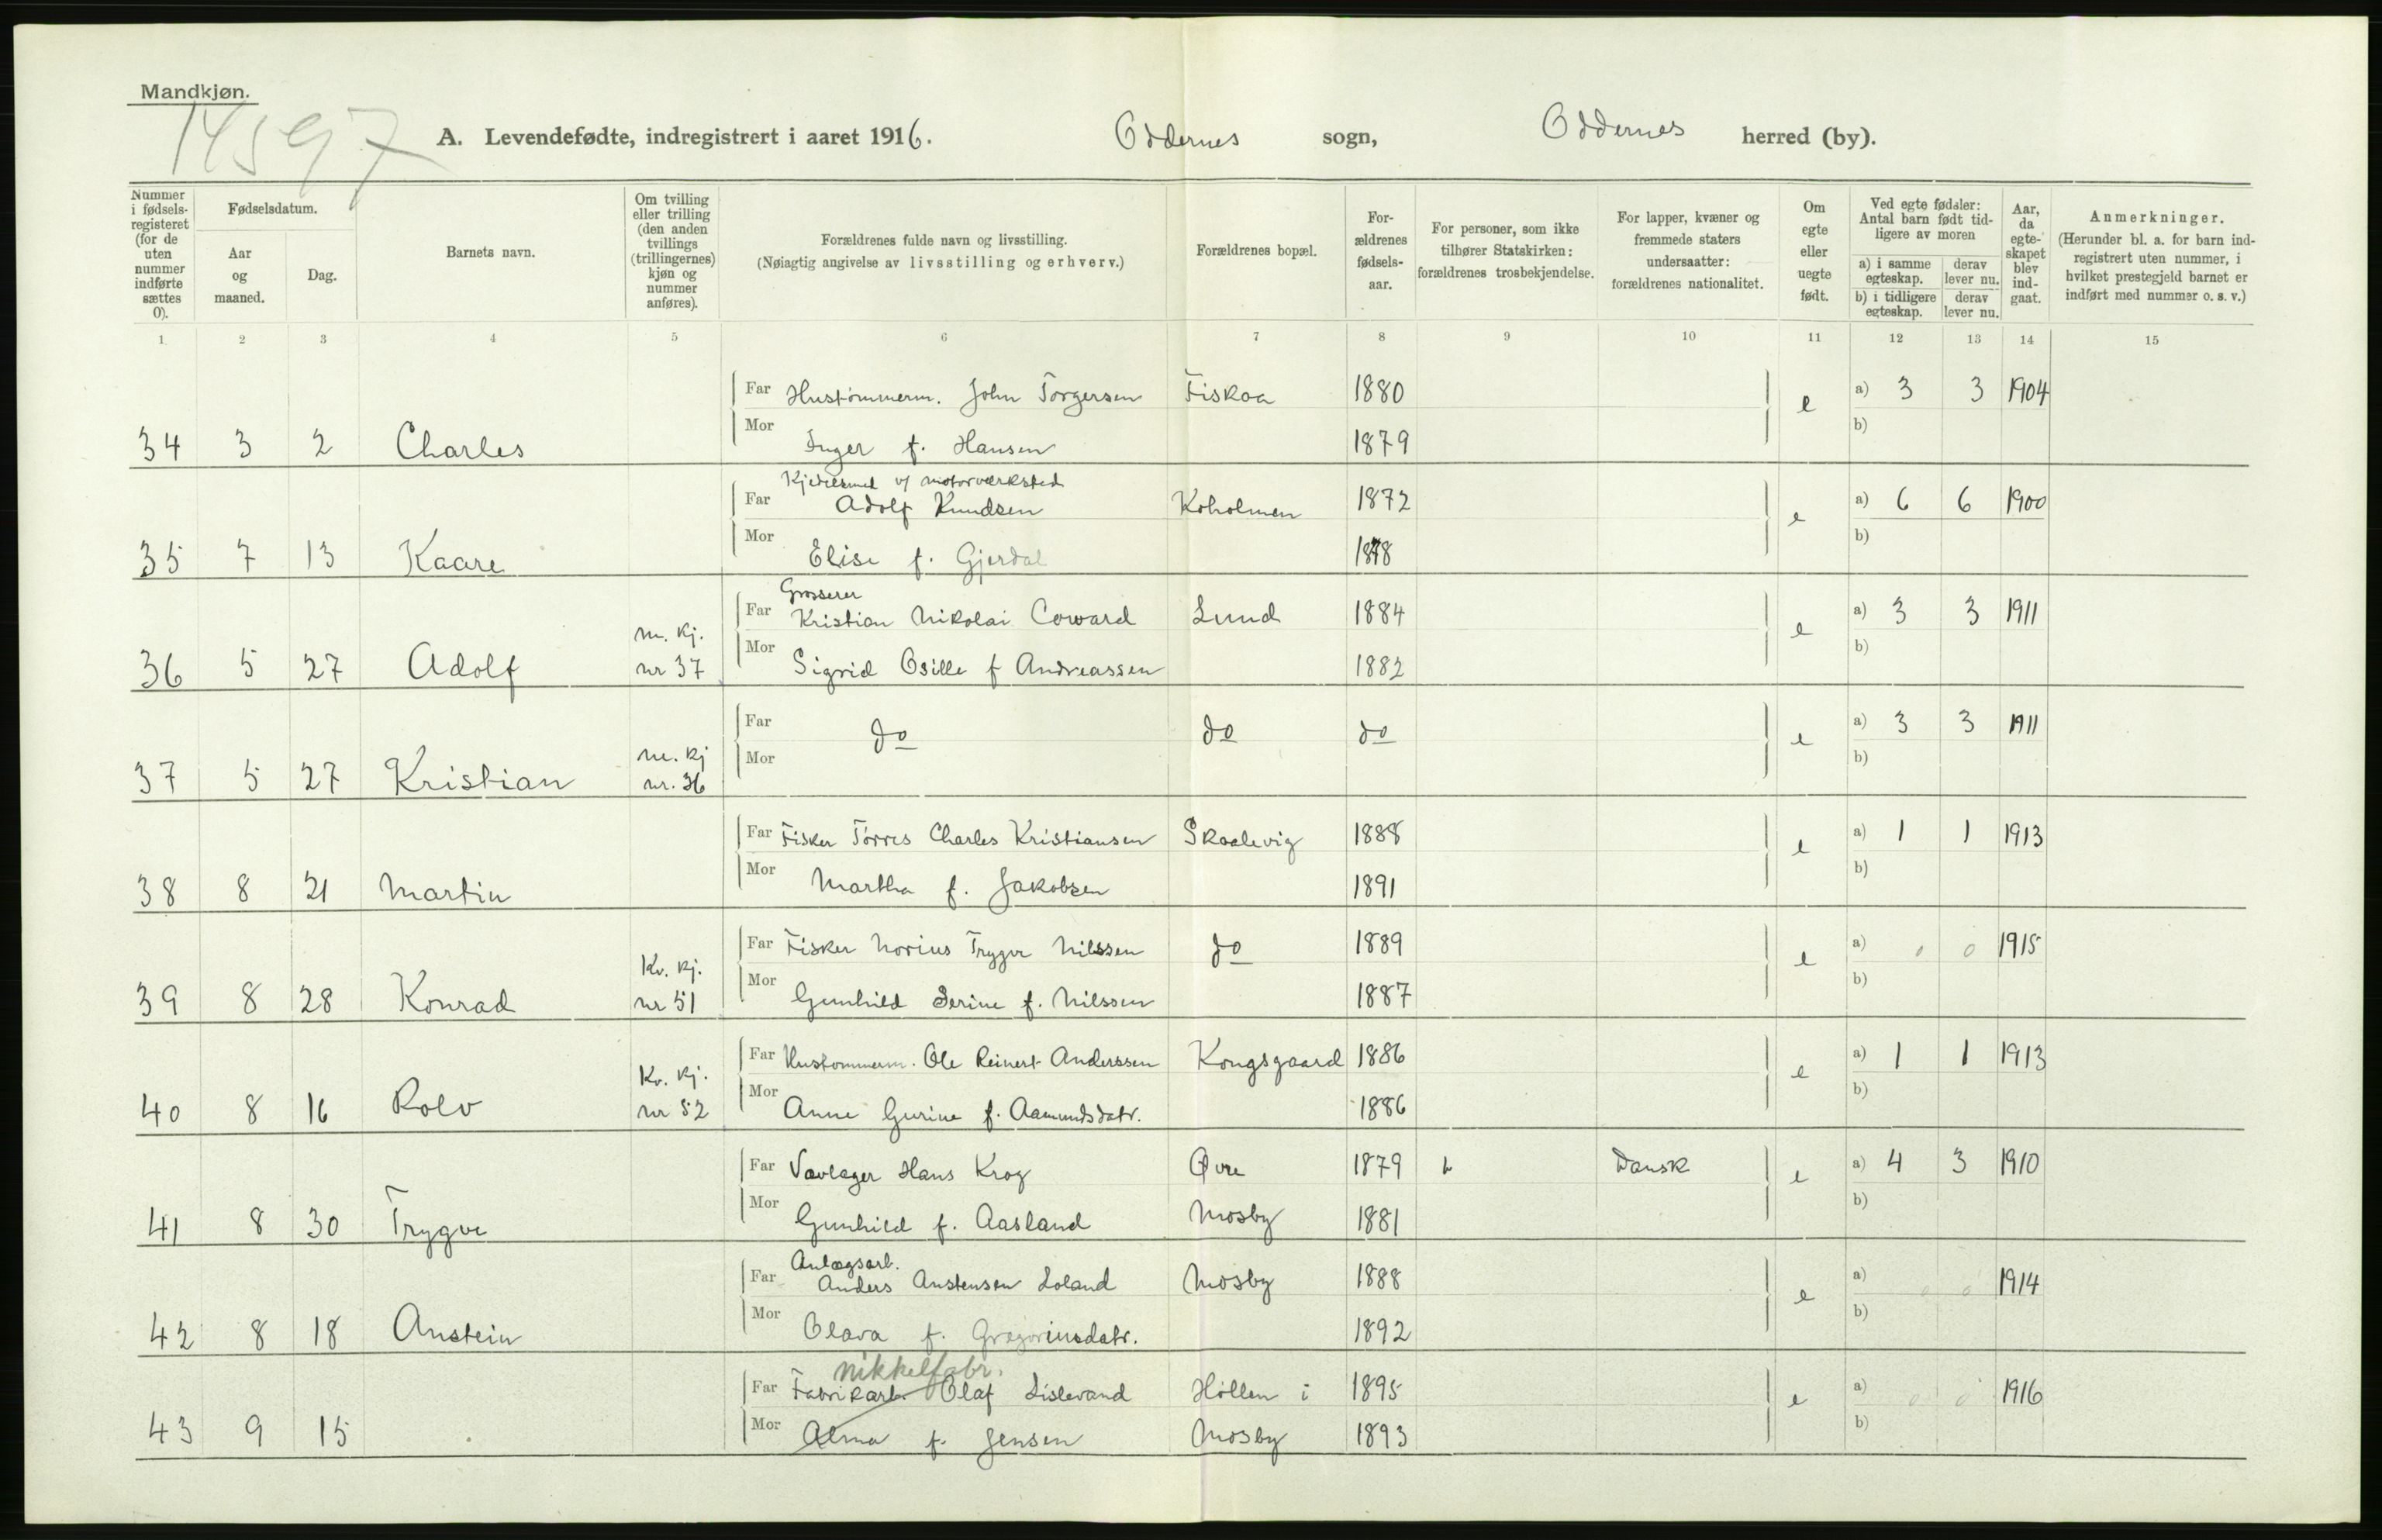 Mandkjøn.
14597
A. Levendefødte, indregistrert i aaret 1916. Oddernes sogn, Oddernes herred (by).
Nummer i fødselsregisteret (for de uten nummer indførte sættes 0).
Fødselsdatum.
Aar og maaned.
Dag.
Barnets navn.
Om tvilling eller trilling (den anden tvillings (trillingernes) kjøn og nummer anføres).
Forældrenes fulde navn og livsstilling.
(Nøiagtig angivelse av livsstilling og erhverv.)
Forældrenes bopæl.
Forældrenes fødselsaar.
For personer, som ikke tilhører Statskirken: forældrenes trosbekjendelse.
For lapper, kvæner og fremmede staters undersaatter: forældrenes nationalitet.
Om egte eller uegte født.
Ved egte fødsler: Antal barn født tidligere av moren
a) i samme egteskap. derav lever nu.
b) i tidligere egteskap. derav lever nu.
Aar, da egteskapet blev indgaat.
Anmerkninger.
(Herunder bl. a. for barn indregistrert uten nummer, i hvilket prestegjeld barnet er indført med nummer o. s. v.)
1 2 3 4 5 6 7 8 9 10 11 12 13 14 15
Far Hustømmerm. John Torgersen Fiskaa 1880 e a) 3 3 1904
34 3 2 Charles Mor Inger f. Hansen 1879 b)
Kjedelsmed v/ motorværksted
Far Adolf Knudsen Koholmen 1872 e a) 6 6 1900
35 7 13 Kaare Mor Elise f. Gjerdal 1878 b)
Grosserer
Far Kristian Nikolai Coward Lund 1884 e a) 3 3 1911
36 5 27 Adolf m. kj. nr 37 Mor Sigrid Osille f Andreassen 1882 b)
Far do do do e a) 3 3 1911
37 5 27 Kristian m. kj nr. 36 Mor b)
Far Fisker Tørres Charles Kristiansen Skaalevig 1888 e a) 1 1 1913
38 8 21 Martin Mor Martha f. Jakobsen 1891 b)
Far Fisker Norius Trygve Nilssen do 1889 e a) 0 0 1915
39 8 28 Konrad Kv. kj. nr 51 Mor Gunhild Serine f. Nilssen 1887 b)
Far Hustømmerm. Ole Reinert Anderssen Kongsgaard 1886 e a) 1 1 1913
40 8 16 Rolv Kv. kj. nr 52 Mor Anne Gurine f. Aamundsdatr. 1886 b)
Far Hans Krog Øvre 1879 Dansk e a) 4 3 1910
41 8 30 Trygve Mor Gunhild f. Aasland Mosby 1881 b)
Anlægsarb.
Far Anders Anstensen Loland Mosby 1888 e a) 0 0 1914
42 8 18 Anstein Mor Olava f. Gregoriusdatr. 1892 b)
nikkelfabr.
Far Fabrikarb. Olaf Lislevand Höllen i 1895 e a) 0 0 1916
43 9 15 Mor Alma f. Jensen Mosby 1893 b)